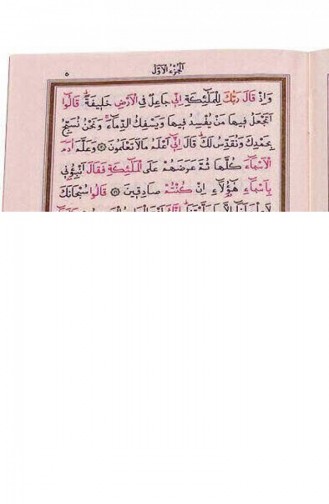 ٥ اَلْجُزْءُ الْاَوَّلُ
وَاِذْ قَالَ رَبُّكَ لِلْمَلٰٓئِكَةِ اِنّ۪ي جَاعِلٌ فِي الْاَرْضِ خَل۪يفَةًۜ قَالُٓوا
اَتَجْعَلُ ف۪يهَا مَنْ يُفْسِدُ ف۪يهَا وَيَسْفِكُ الدِّمَٓاءَۚ وَنَحْنُ نُسَبِّحُ
بِحَمْدِكَ وَنُقَدِّسُ لَكَۜ قَالَ اِنّ۪ٓي اَعْلَمُ مَا لَا تَعْلَمُونَ ۞ وَعَلَّمَ اٰدَمَ
الْاَسْمَٓاءَ كُلَّهَا ثُمَّ عَرَضَهُمْ عَلَى الْمَلٰٓئِكَةِ فَقَالَ اَنْبِؤُ۫ن۪ي
بِاَسْمَٓاءِ هٰٓؤُ۬لَٓاءِ اِنْ كُنْتُمْ صَادِق۪ينَ ۞ قَالُوا سُبْحَانَكَ